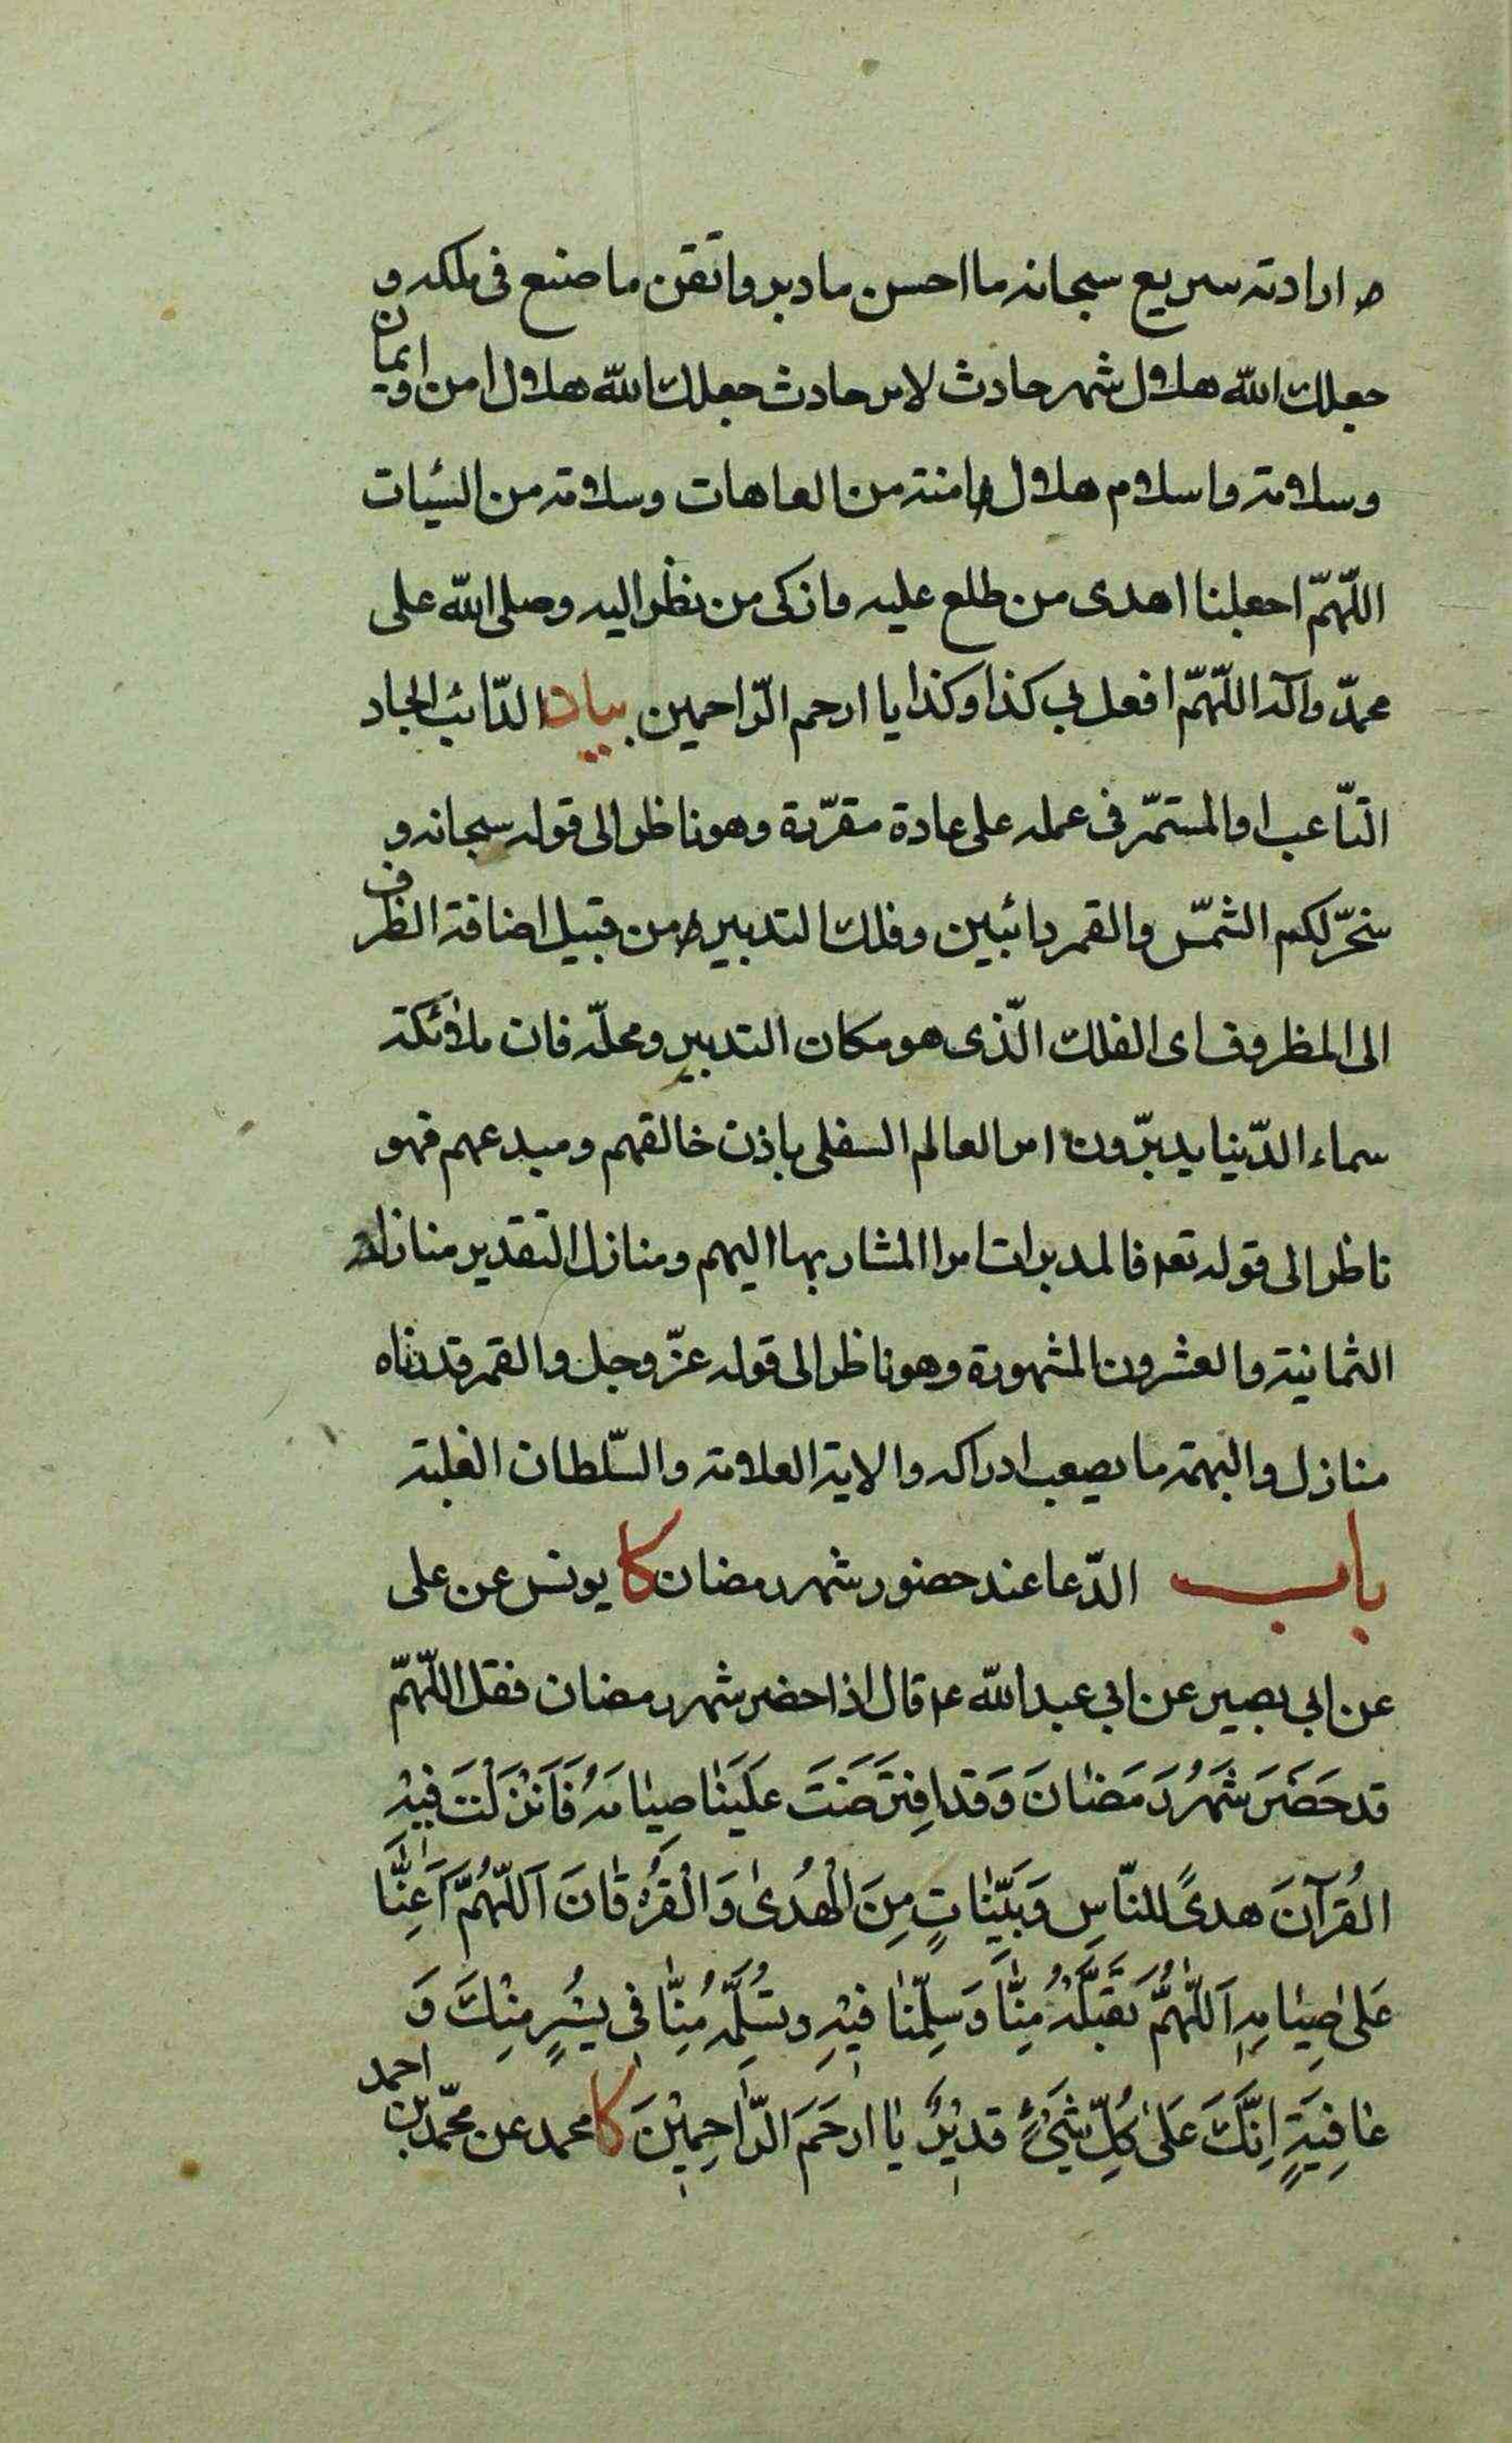 و ارادته سريع سبحانه ما احسن ما دبر واتقن ما صنع فى ملكه و
جعلك الله هلال شهر حادث لامر حادث جعلك الله هلال امن و ايمان
وسلامة واسلام هلال امنة من العاهات وسلامة من السيئات
اللّهمّ اجعلنا اهدى من طلع عليه وازكى من نظر اليه وصلى الله على
محمدّ وآله اللّهمّ افعل بى كذا وكذا يا ارحم الرّاحمين بيان الدّائب الجاد
التّاعب او المستمّر فى عمله على عادة مقرّرة وهو ناظر الى قوله سبحانه و
سخّر لكم الشمّس والقمر دائبين وفلك التدبير من قبيل اضافة الظرف
الى المظروف اى الفلك الّذى هو مكان التدبير ومحلّه فان ملائكة
سماء الدّنيا يدبّرون امر العالم السفلى باذن خالقهم ومبدعهم فهو
ناظر الى قوله تعه فالمدبرات امرا المشار بها اليهم ومنازل التقدير منازله
الثمانية والعشرون المشهورة وهو ناظر الى قوله عزّ وجل والقمر قدرناه
منازل والبهمة ما يصعب ادراكه والاية العلامة والسّلطان الغلبة
باب الدّعا عند حضور شهر رمضان كا يونس عن على
عن ابى بصير عن ابى عبدالله ع قال اذا حضر شهر رمضان فقل اللّهمّ
قد حَضَرَ شَهْرُ رَمَضٰانَ وَقد افتَرَضْتَ عَلَينٰا صِيٰامَهُ فَاَنْزَلْتَ فيْهِ
القُرآنَ هدىً للنّاسِ وَبَيّنٰاتٍ مِنَ الْهُدىٰ وَالْفُرْقٰانَ اَللّهُمَّ اَعِنّٰا
عَلى صِيٰامِهِ اَللّٰهُمَّ تَقَبَّلْهُ مِنّٰا وَسَلِّمْنٰا فيْهِ وتَسَلَّمْهُ مِنّٰا فى يُسْرٍ مِنْكَ وَ
عٰافِيَةٍ اِنَّكَ عَلىٰ كُلِّ شَىْءٍ قديْرٌ يٰا ارحَمَ الرّٰاحِمِيْنَ كا محمد عن محمّد بن احمد